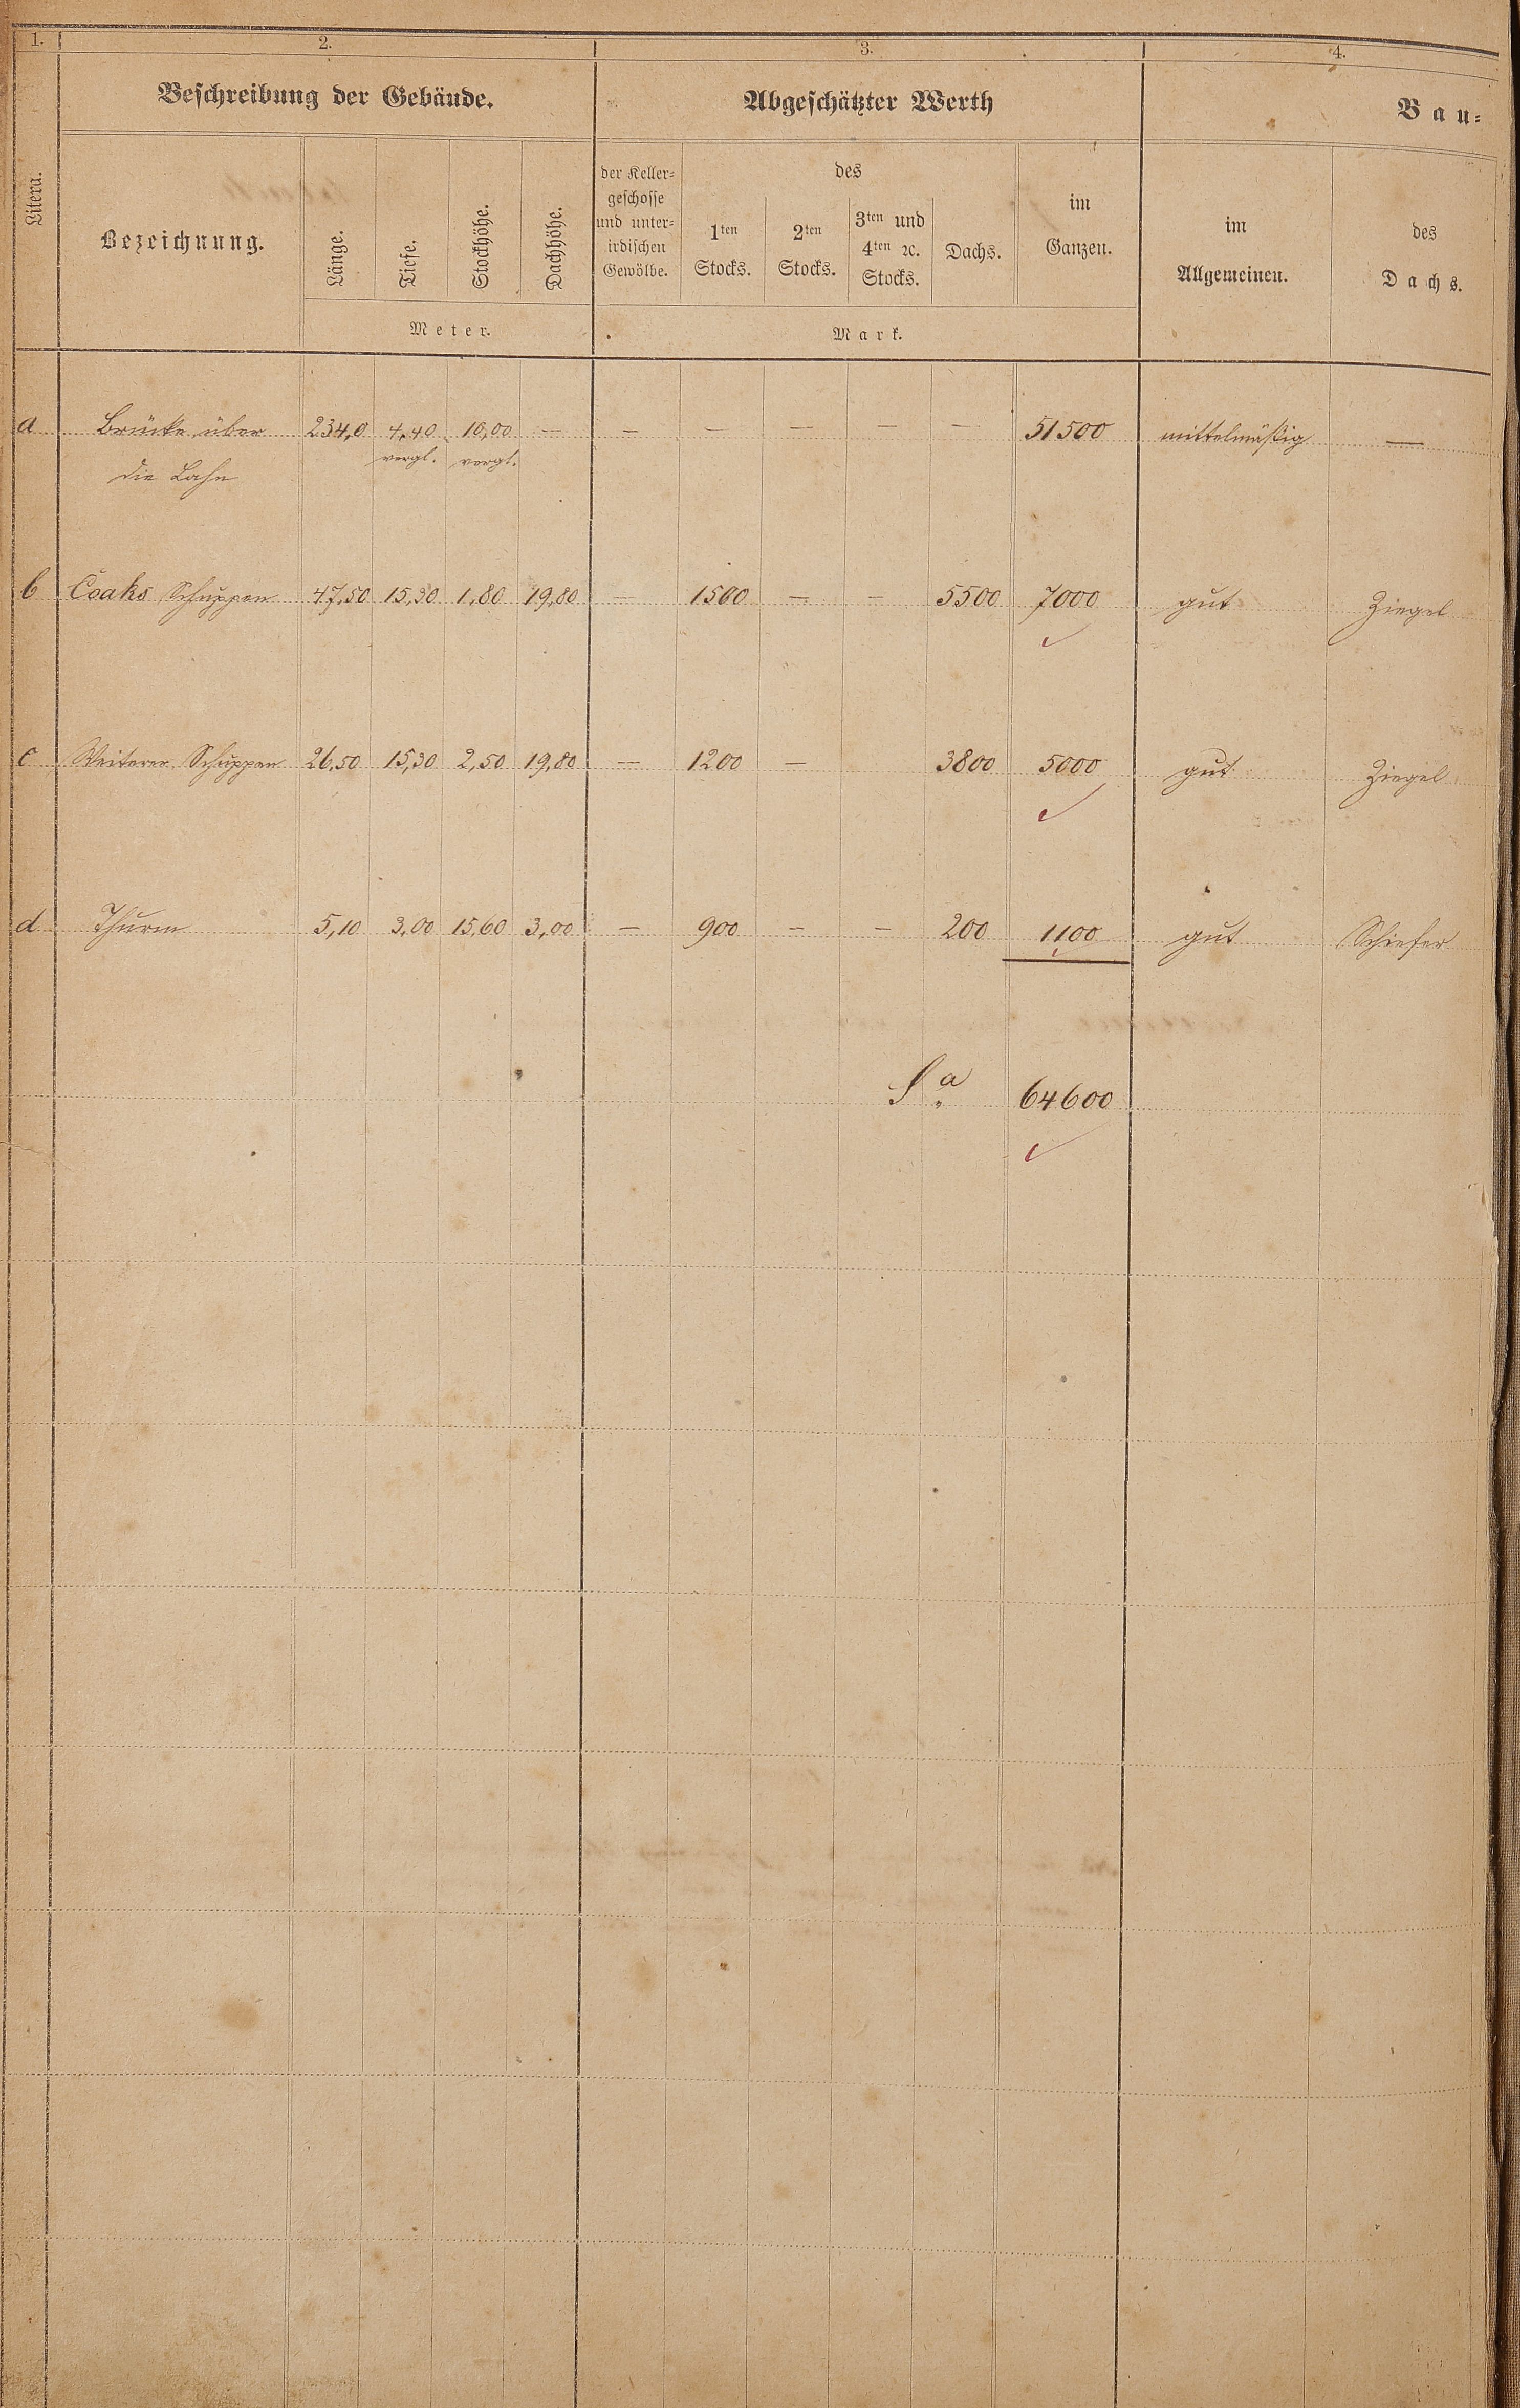 1. 2. 3. 4.
Litera.
Beschreibung der Gebäude.
Abgeschätzter Werth
Bau-
Bezeichnung.
Länge.
Tiefe.
Stockhöhe.
Dachhöhe.
Meter.
der Keller-
geschosse
und unter-
irdischen
Gewölbe.
des
1ten
Stocks.
2ten
Stocks.
3ten und
4ten ꝛc.
Stocks.
Dachs.
im
Ganzen.
Mark.
im
Allgemeinen.
des
Dachs.
a Brücke über 234,0 4,40 10,00 — — — — — — 51500 mittelmäßig —
vergl. vergl.
die Lahn
b Coaks Schuppen 47,50 15,30 1,80 19,80 — 1500 — — 5500 7000 gut Ziegel
c Weiterer Schuppen 26,50 15,30 2,50 19,80 — 1200 — 3800 5000 gut Ziegel
d Thurm 5,10 3,00 15,60 3,00 — 900 — — 200 1100 gut Schiefer
Sa. 64600